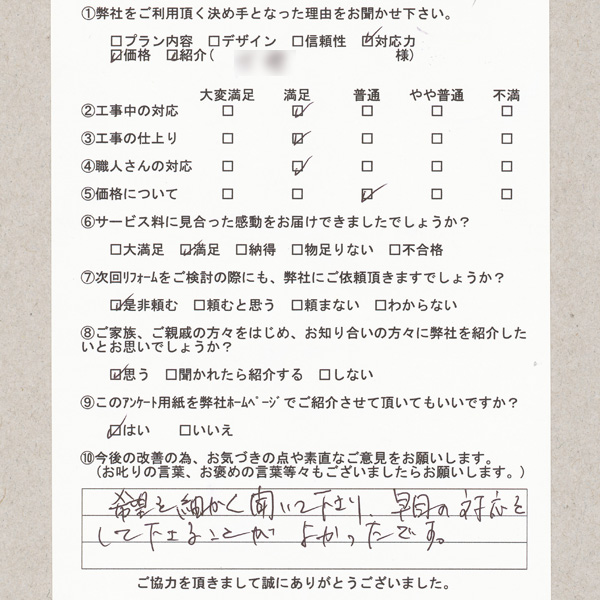 ①弊社をご利用頂く決め手となった理由をお聞かせ下さい。
□プラン内容 □デザイン □信頼性 ☑対応力
☑価格 ☑紹介( 様)
大変満足 満足 普通 やや普通 不満
②工事中の対応 □ ☑ □ □ □
③工事の仕上り □ ☑ □ □ □
④職人さんの対応 □ ☑ □ □ □
⑤価格について □ □ ☑ □ □
⑥サービス料に見合った感動をお届けできましたでしょうか？
□大満足 ☑満足 □納得 □物足りない □不合格
⑦次回ﾘﾌｫｰﾑをご検討の際にも、弊社にご依頼頂きますでしょうか？
☑是非頼む □頼むと思う □頼まない □わからない
⑧ご家族、ご親戚の方々をはじめ、お知り合いの方々に弊社を紹介した
いとお思いでしょうか？
☑思う □聞かれたら紹介する □しない
⑨このｱﾝｹｰﾄ用紙を弊社ﾎｰﾑﾍﾟｰｼﾞでご紹介させて頂いてもいいですか？
☑はい □いいえ
⑩今後の改善の為、お気づきの点や素直なご意見をお願いします。
（お叱りの言葉、お褒めの言葉等々もございましたらお願いします。）
希望を細かく聞いて下さり、早目の対応を
して下さることがよかったです。
ご協力を頂きまして誠にありがとうございました。